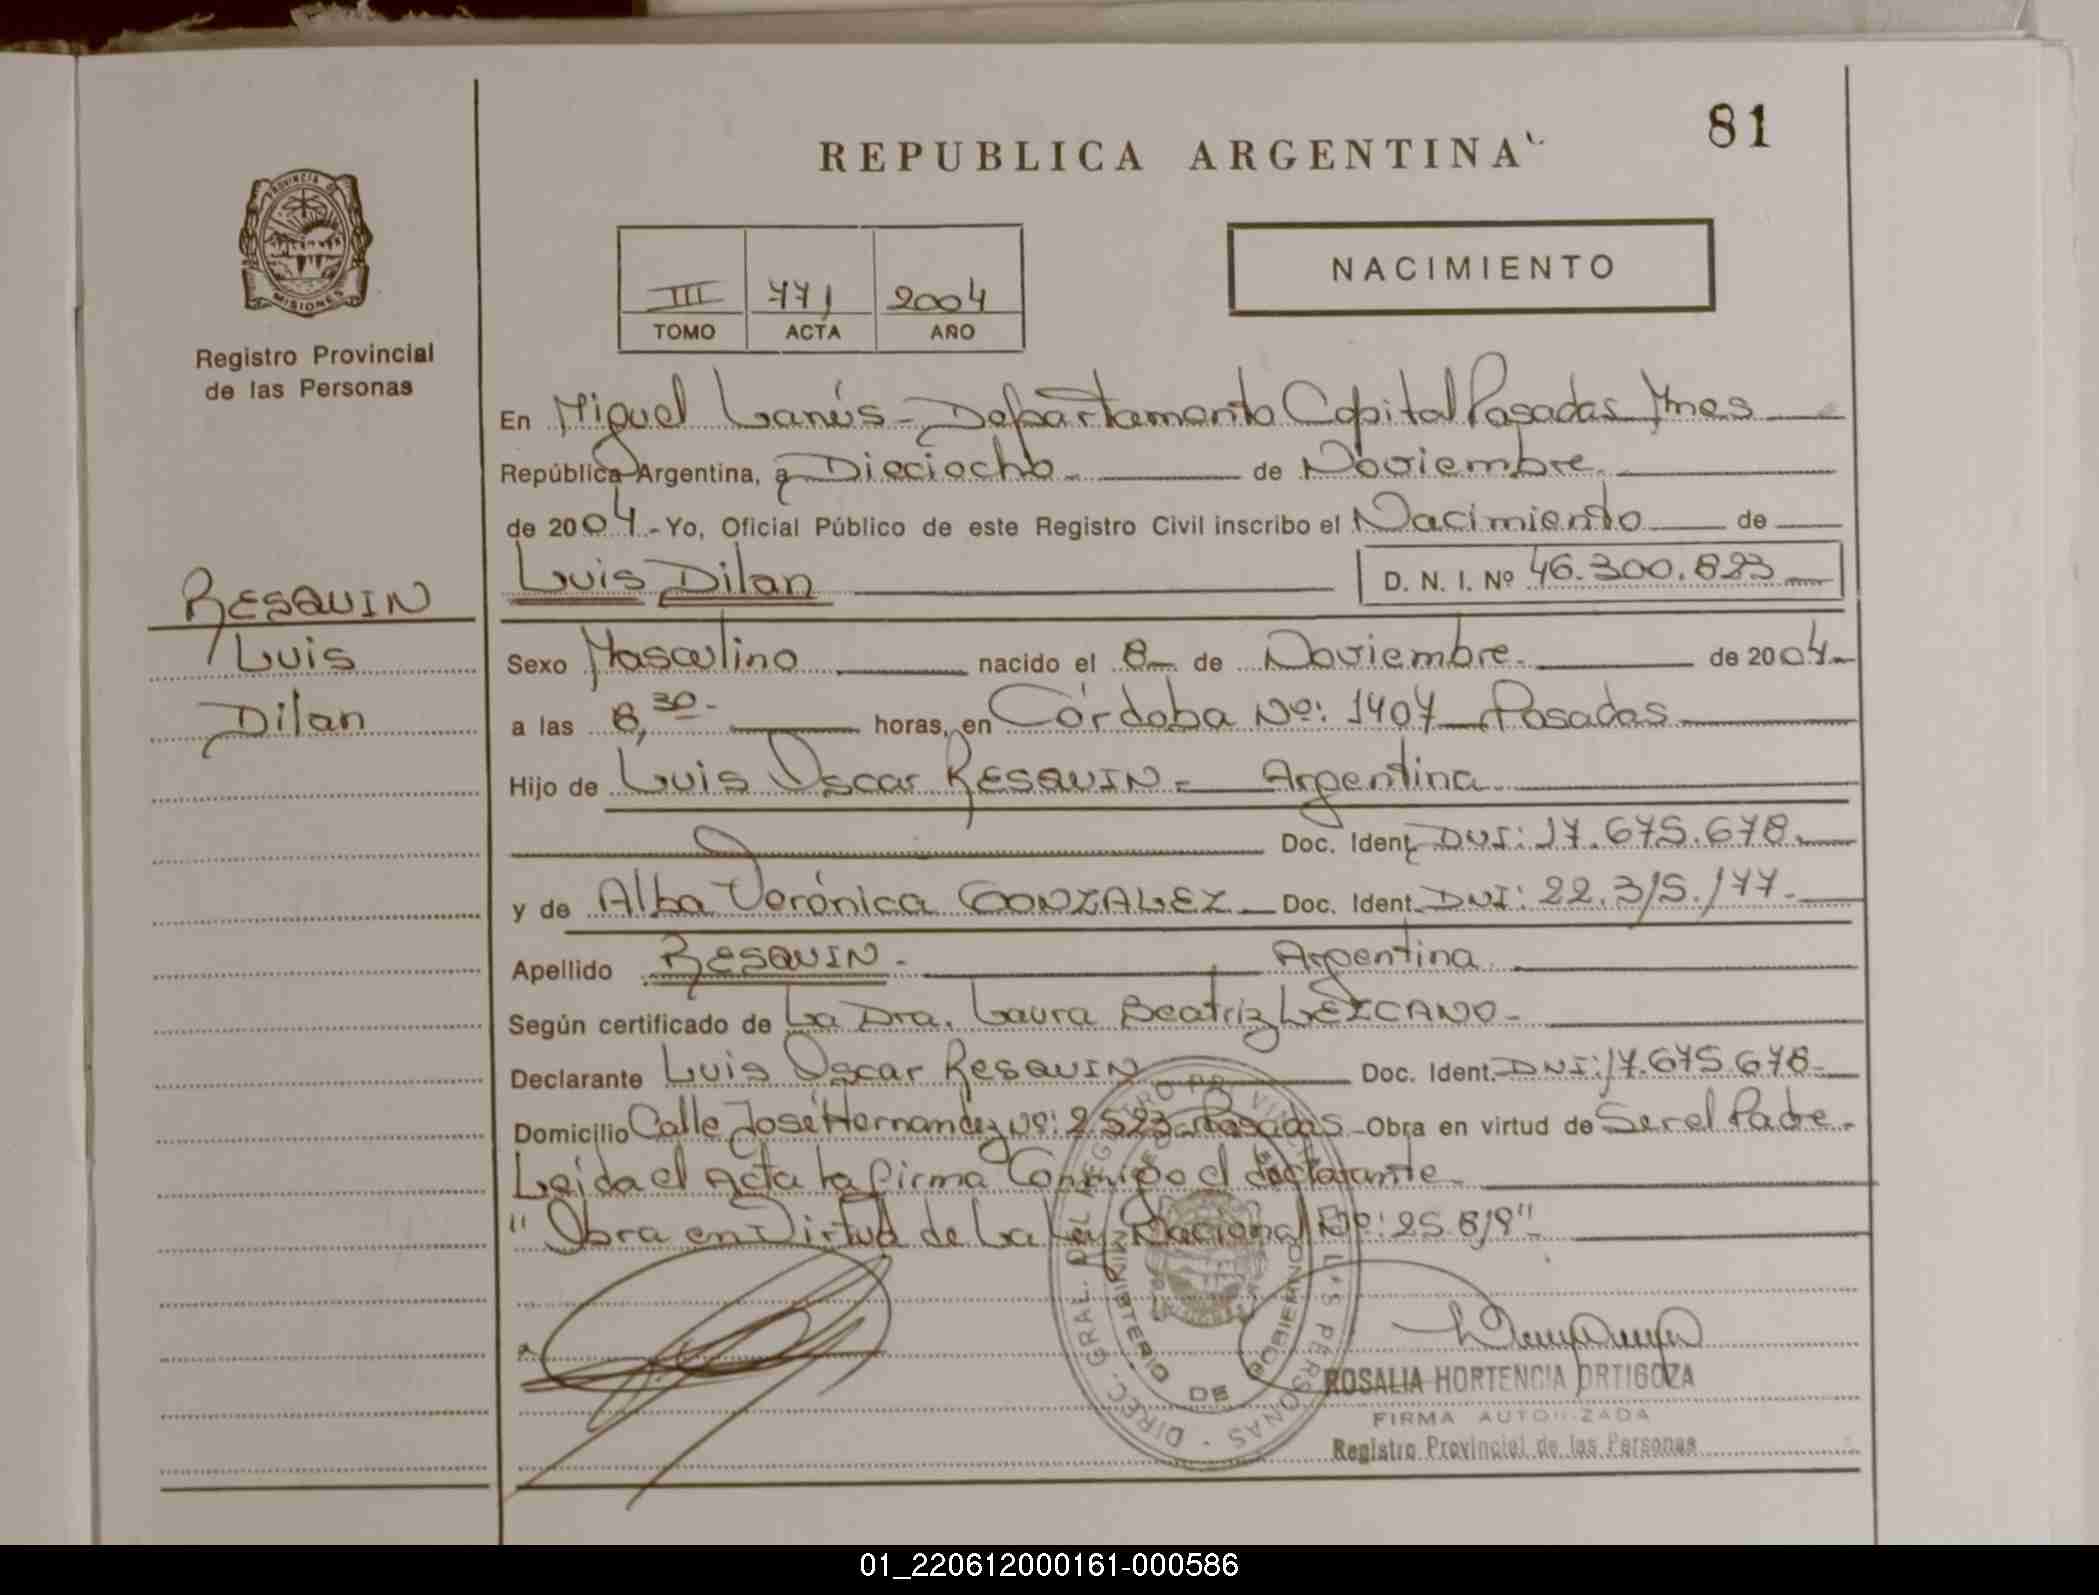 81
REPUBLICA ARGENTINA
NACIMIENTO
III 771 2004
TOMO ACTA AÑO
PROVINCIA DE
MISIONES
Registro Provincial
de las Personas
RESQUIN
Luis
Dilan
En Miguel Lanús - Departamento Capital Posadas Mnes
República Argentina, a Dieciocho de Noviembre
de 2004 - Yo, Oficial Público de este Registro Civil inscribo el Nacimiento de
Luis Dilan D. N. I. Nº 46.300.823
Sexo Masculino nacido el 8 de Noviembre de 2004
a las 8,30 horas, en Córdoba Nº: 1407 Posadas
Hijo de Luis Oscar RESQUIN - Argentina
Doc. Ident. DNI: 17.675.678
y de Alba Verónica GONZALEZ Doc. Ident. DNI: 22.315.177
Apellido RESQUIN - Argentina
Según certificado de La Dra. Laura Beatriz LEZCANO -
Declarante Luis Oscar RESQUIN Doc. Ident. DNI: 17.675.678
Domicilio Calle José Hernandez Nº: 2.523 Posadas - Obra en virtud de Ser el Padre -
Leida el Acta la firma Conmigo el declarante
"Obra en Virtud de La Ley Nacional Nº: 25.819"
DIREC. GRAL. DEL REGISTRO PROVINCIAL DE LAS PERSONAS
MINISTERIO DE GOBIERNO
ROSALIA HORTENCIA ORTIGOZA
FIRMA AUTORIZADA
Registro Provincial de las Personas
01_220612000161-000586